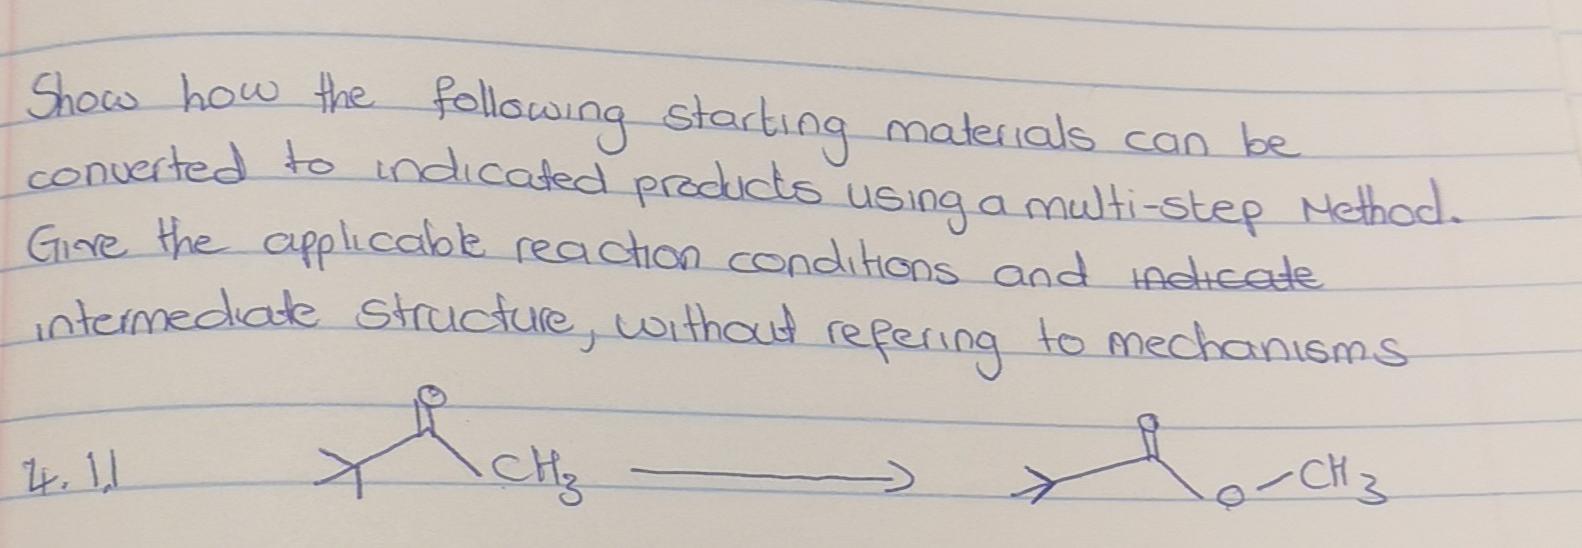 Show how the following starting materials can be
converted to indicated products using a multi-step Method.
Give the applicable reaction conditions and indicate
intermediate structure, without refering to mechanisms
4.1.1 O CH3 O O-CH3